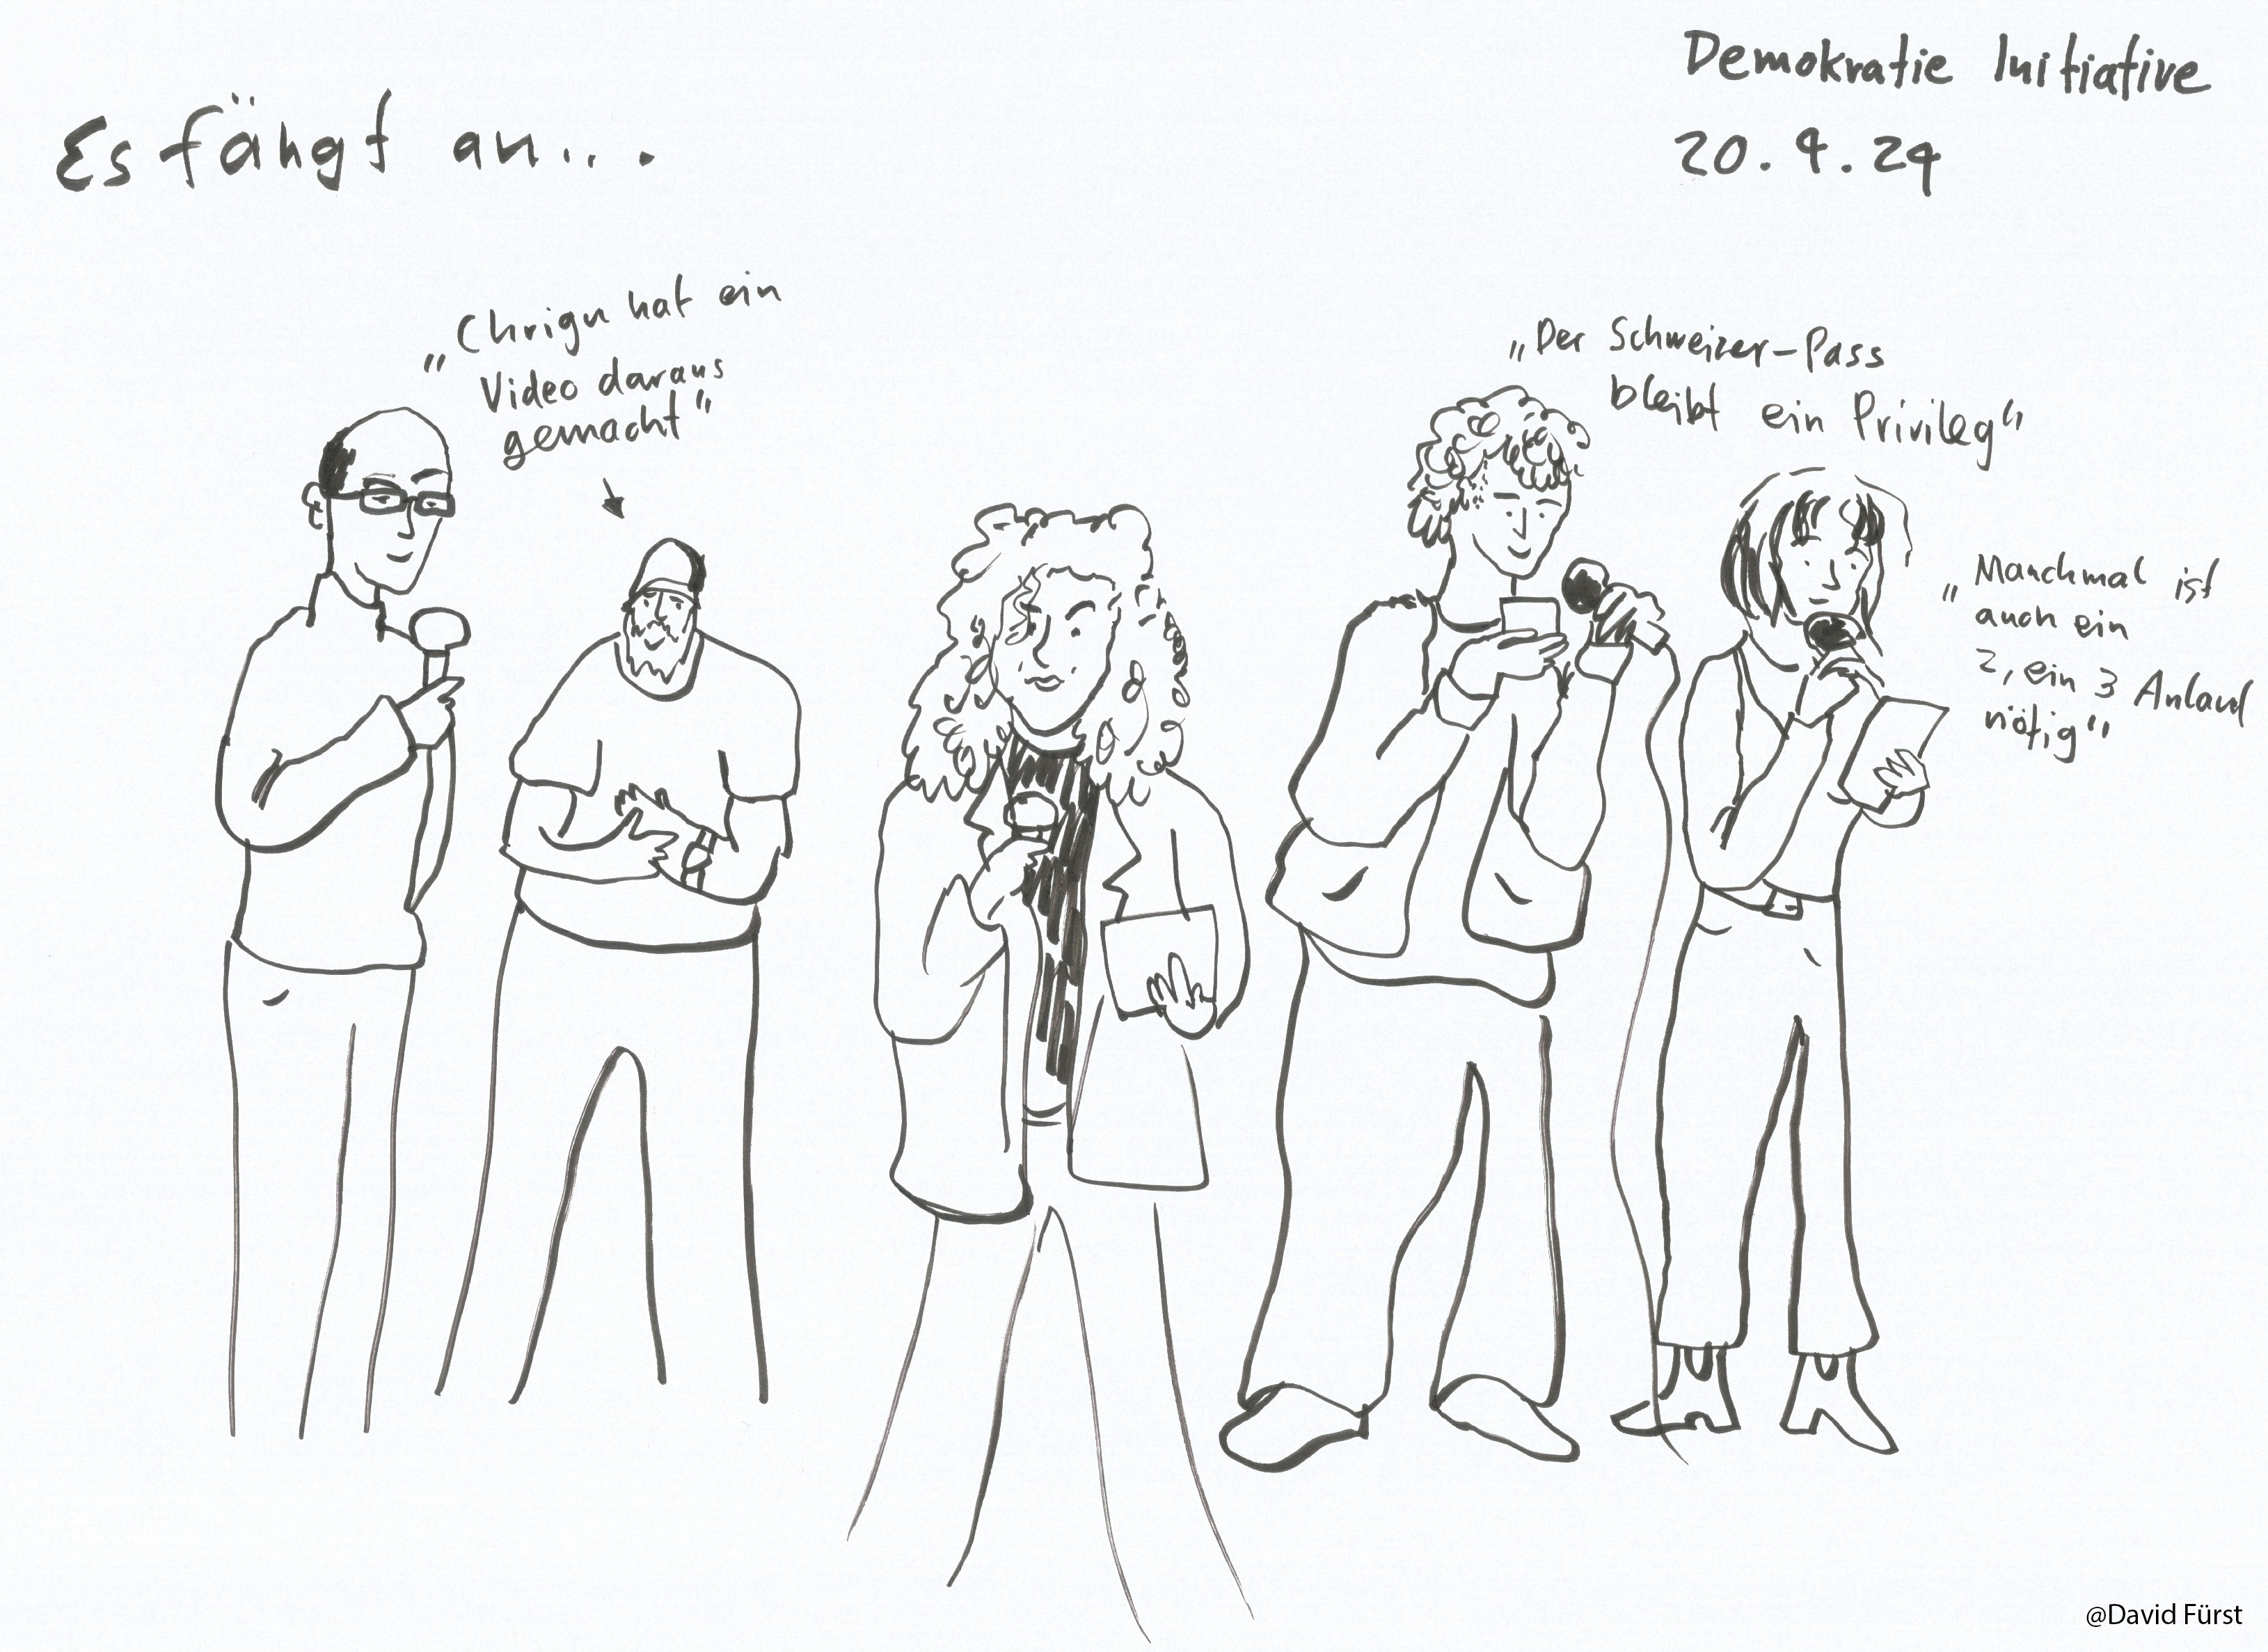 Es fängt an...
Demokratie Initiative
20.4.24
„Chrigu hat ein
Video daraus
gemacht"
„Der Schweizer-Pass
bleibt ein Privileg"
„Manchmal ist
auch ein
2, ein 3 Anlauf
nötig"
@David Fürst